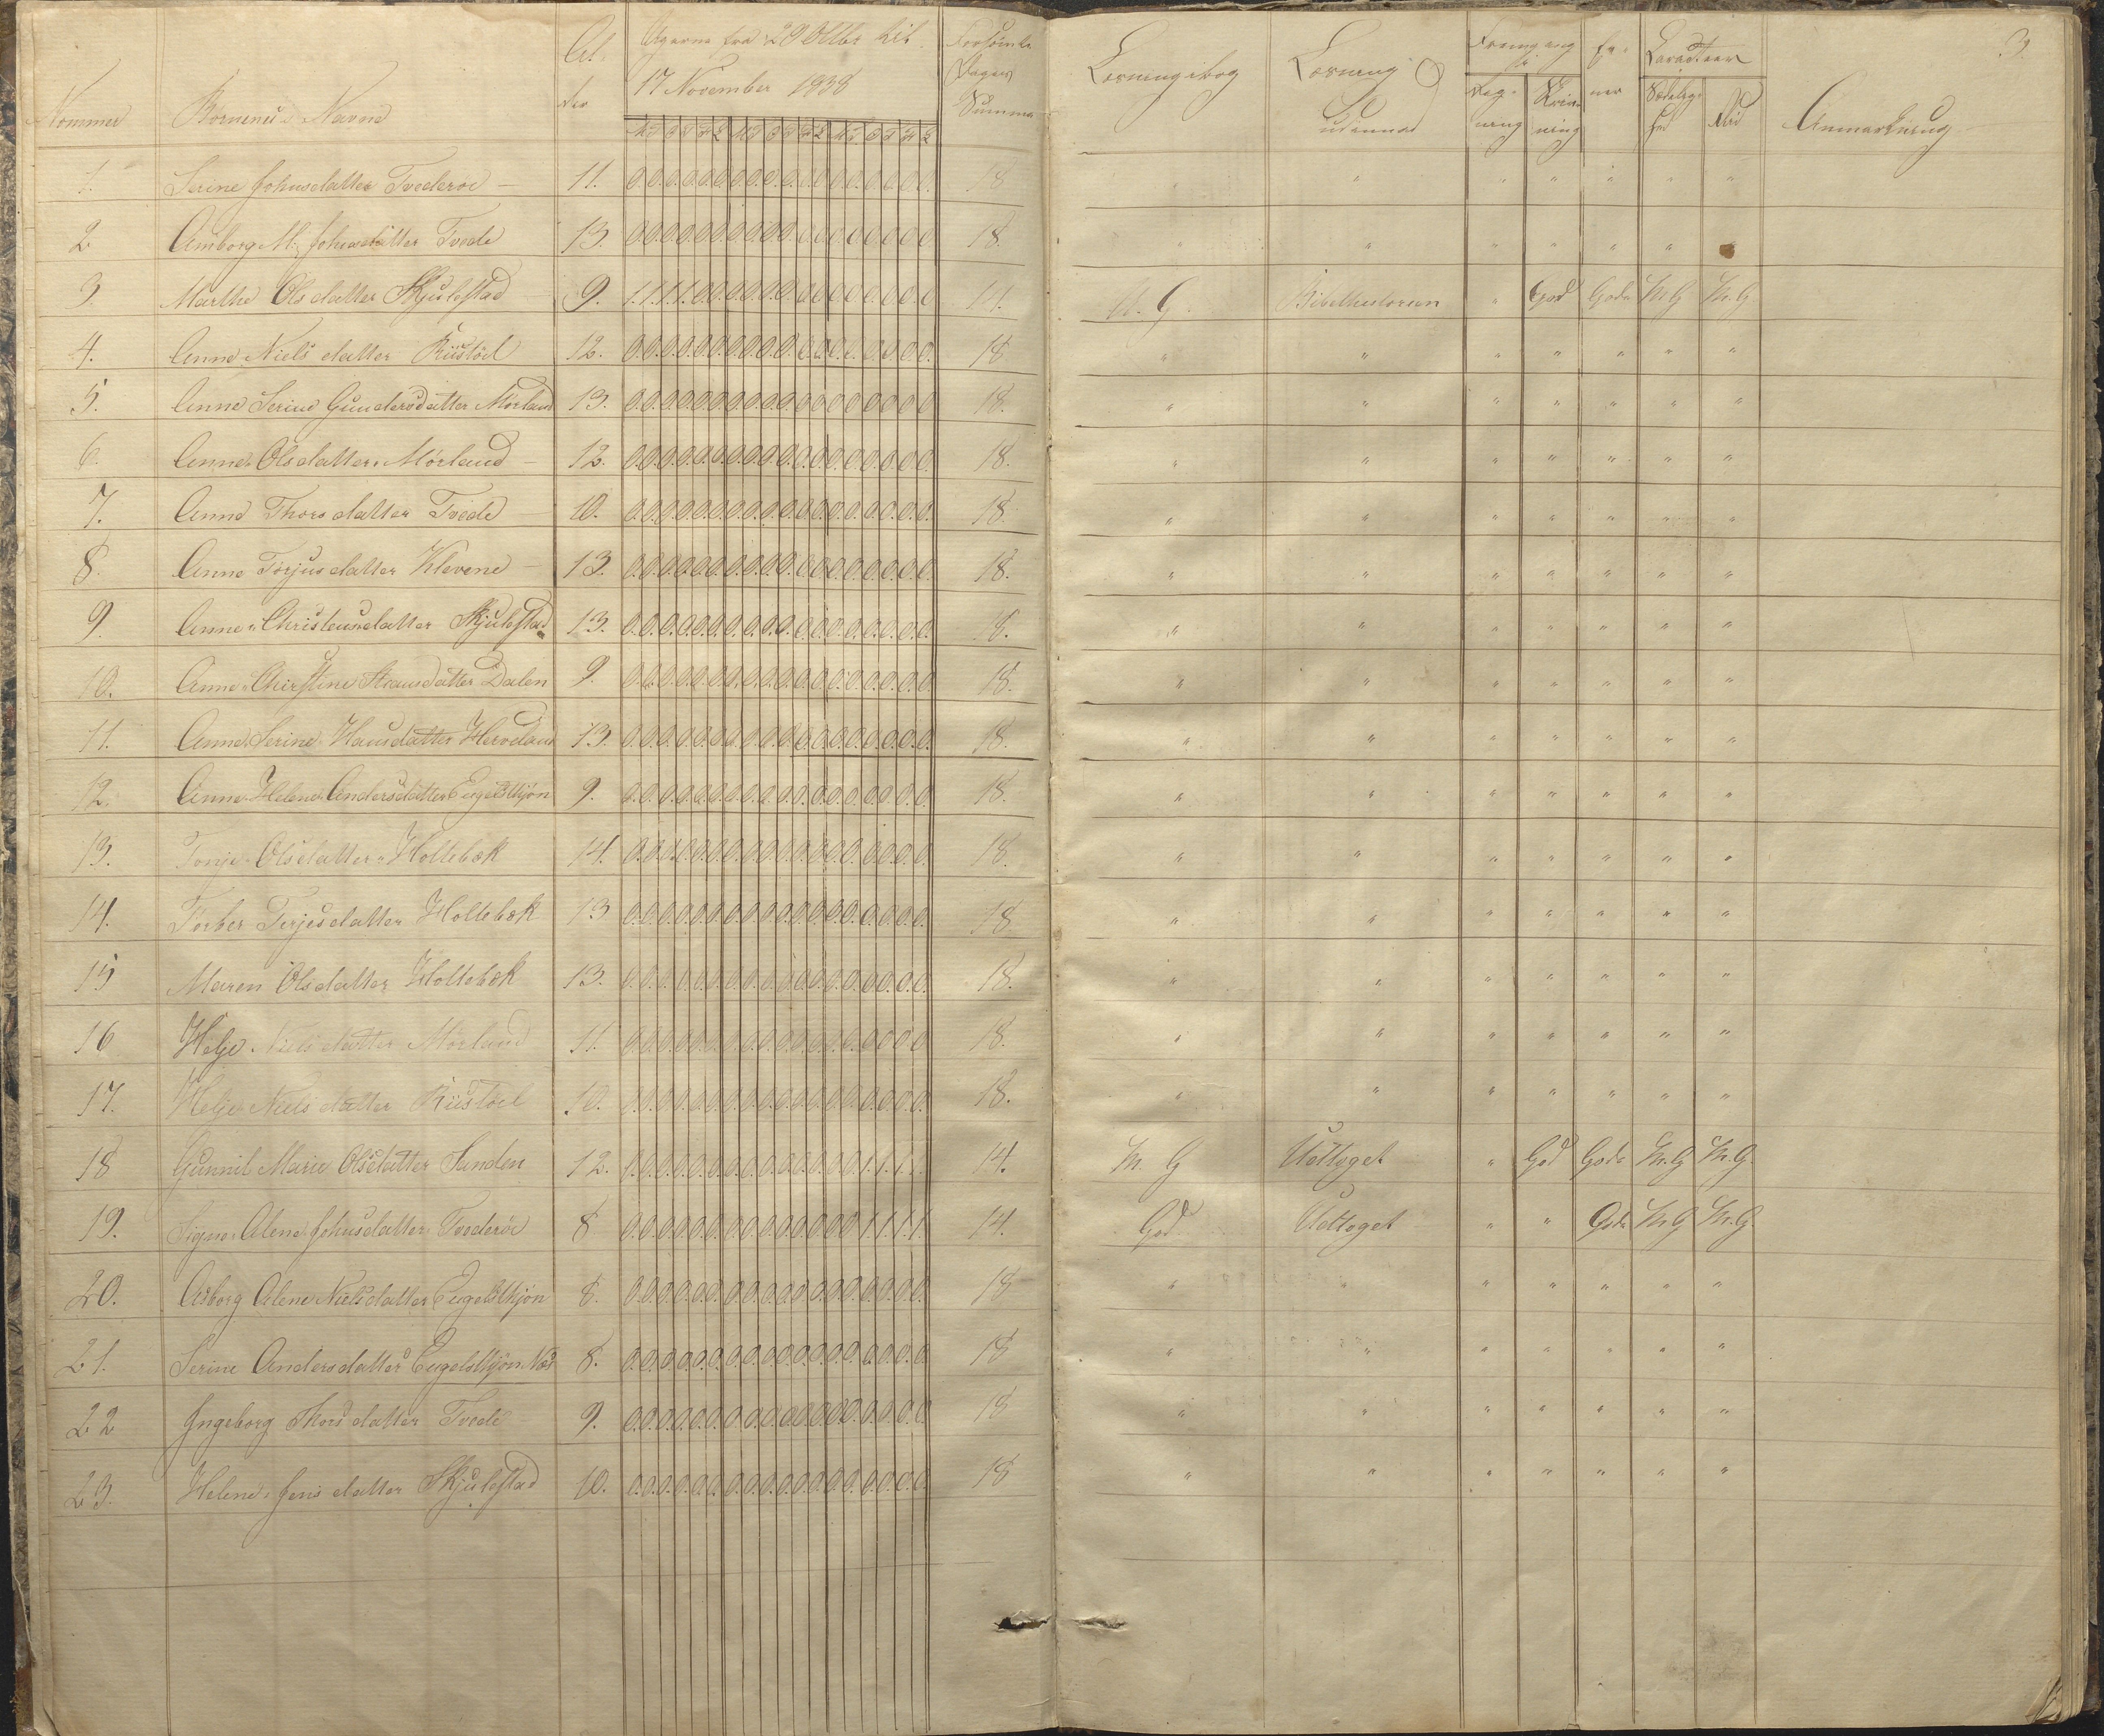 3.
Nommer Börnenes Navne Al- der Ugerne fra 29 Octbr til 17 November 1838 Forsömte Dages Summa Læsning i bog Læsning Udennad Fremgang i Reg- ning Skriv- ning Ev- ner Caracteer Sædelig- hed Flid Anmærkning
M T O T F L M T O T F L M T O T F L
1. Serine Johnsdatter Tvederöe 11. 0.0.0.0.0.0.0.0.0.0.0.0.0.0.0.0.0.0. 18 " " " " " " "
2 Amborg M. Johnsdatter Tvede 13. 0.0.0.0.0.0.0.0.0.0.0.0.0.0.0.0.0.0 18. " " " " " "
3 Marthe Olsdatter Skjulestad 9. 1.1.1.1.0.0.0.0.0.0.0.0.0.0.0.0.0.0 14. M. G. Bibelhistorien " God Gode M.G M.G
4. Anne Nielsdatter Riistöel 12. 0.0.0.0.0.0.0.0.0.0.0.0.0.0.0.0.0.0. 18 " " " " " " "
5. Anne Serine Gundersdatter Mörland 13. 0.0.0.0.0.0.0.0.0.0.0.0.0.0.0.0.0.0 18. " " " " " " "
6. Anne Olsdatter Mörland 12. 0.0.0.0.0.0.0.0.0.0.0.0.0.0.0.0.0.0. 18. " " " " " " "
7. Anne Thorsdatter Tvede 10. 0.0.0.0.0.0.0.0.0.0.0.0.0.0.0.0.0.0. 18. " " " " " " "
8 Anne Torjusdatter Klevene 13. 0.0.0.0.0.0.0.0.0.0.0.0.0.0.0.0.0.0. 18. " " " " " " "
9. Anne Christensdatter Skjulestad 13. 0.0.0.0.0.0.0.0.0.0.0.0.0.0.0.0.0.0. 18. " " " " " " "
10. Anne Chirstine datter Dalen 9. 0.0.0.0.0.0.0.0.0.0.0.0.0.0.0.0.0.0. 18. " " " " " " "
11. Anne Serine Hansdatter Herveland 13. 0.0.0.0.0.0.0.0.0.0.0.0.0.0.0.0.0.0. 18. " " " " " " "
12. Anne Helene Andersdatter Engelskjön 9. 0.0.0.0.0.0.0.0.0.0.0.0.0.0.0.0.0.0. 18. " " " " " " "
13. Tonje Olsdatter Holtebæk 14. 0.0.0.0.0.0.0.0.0.0.0.0.0.0.0.0.0.0. 18. " " " " " " "
14. Torber Terjesdatter Holtebæk 13 0.0.0.0.0.0.0.0.0.0.0.0.0.0.0.0.0.0. 18 " " " " " " "
15 Maren Olsdatter Holtebæk 13. 0.0.0.0.0.0.0.0.0.0.0.0.0.0.0.0.0.0. 18. " " " " " " "
16 Helje Nielsdatter Mörland 11. 0.0.0.0.0.0.0.0.0.0.0.0.0.0.0.0.0.0 18. " " " " " " "
17. Helje Nielsdatter Riistöel 10. 0.0.0.0.0.0.0.0.0.0.0.0.0.0.0.0.0.0. 18. " " " " " " "
18 Gunnil Marie Olsdatter Sanden 12. 0.0.0.0.0.0.0.0.0.0.0.0.0.0.1.1.1.1. 14. M. G Udtoget " God Gode M.G M.G.
19. Signe Alene Johnsdatter Tvederöe 8 0.0.0.0.0.0.0.0.0.0.0.0.0.0.1.1.1.1. 14. God Udtoget " " Gode M.G M.G.
20. Asborg Alene Nielsdatter Engelskjön 8. 0.0.0.0.0.0.0.0.0.0.0.0.0.0.0.0.0.0. 18 " " " " " " "
21. Serine Andersdatter Engelskjön 8. 0.0.0.0.0.0.0.0.0.0.0.0.0.0.0.0.0.0. 18 " " " " " " "
22 Ingeborg Thorsdatter Tvede 9. 0.0.0.0.0.0.0.0.0.0.0.0.0.0.0.0.0.0 18 " " " " " " "
23. Helene Jensdatter Skjulestad 10. 0.0.0.0.0.0.0.0.0.0.0.0.0.0.0.0.0.0. 18 " " " " " " "